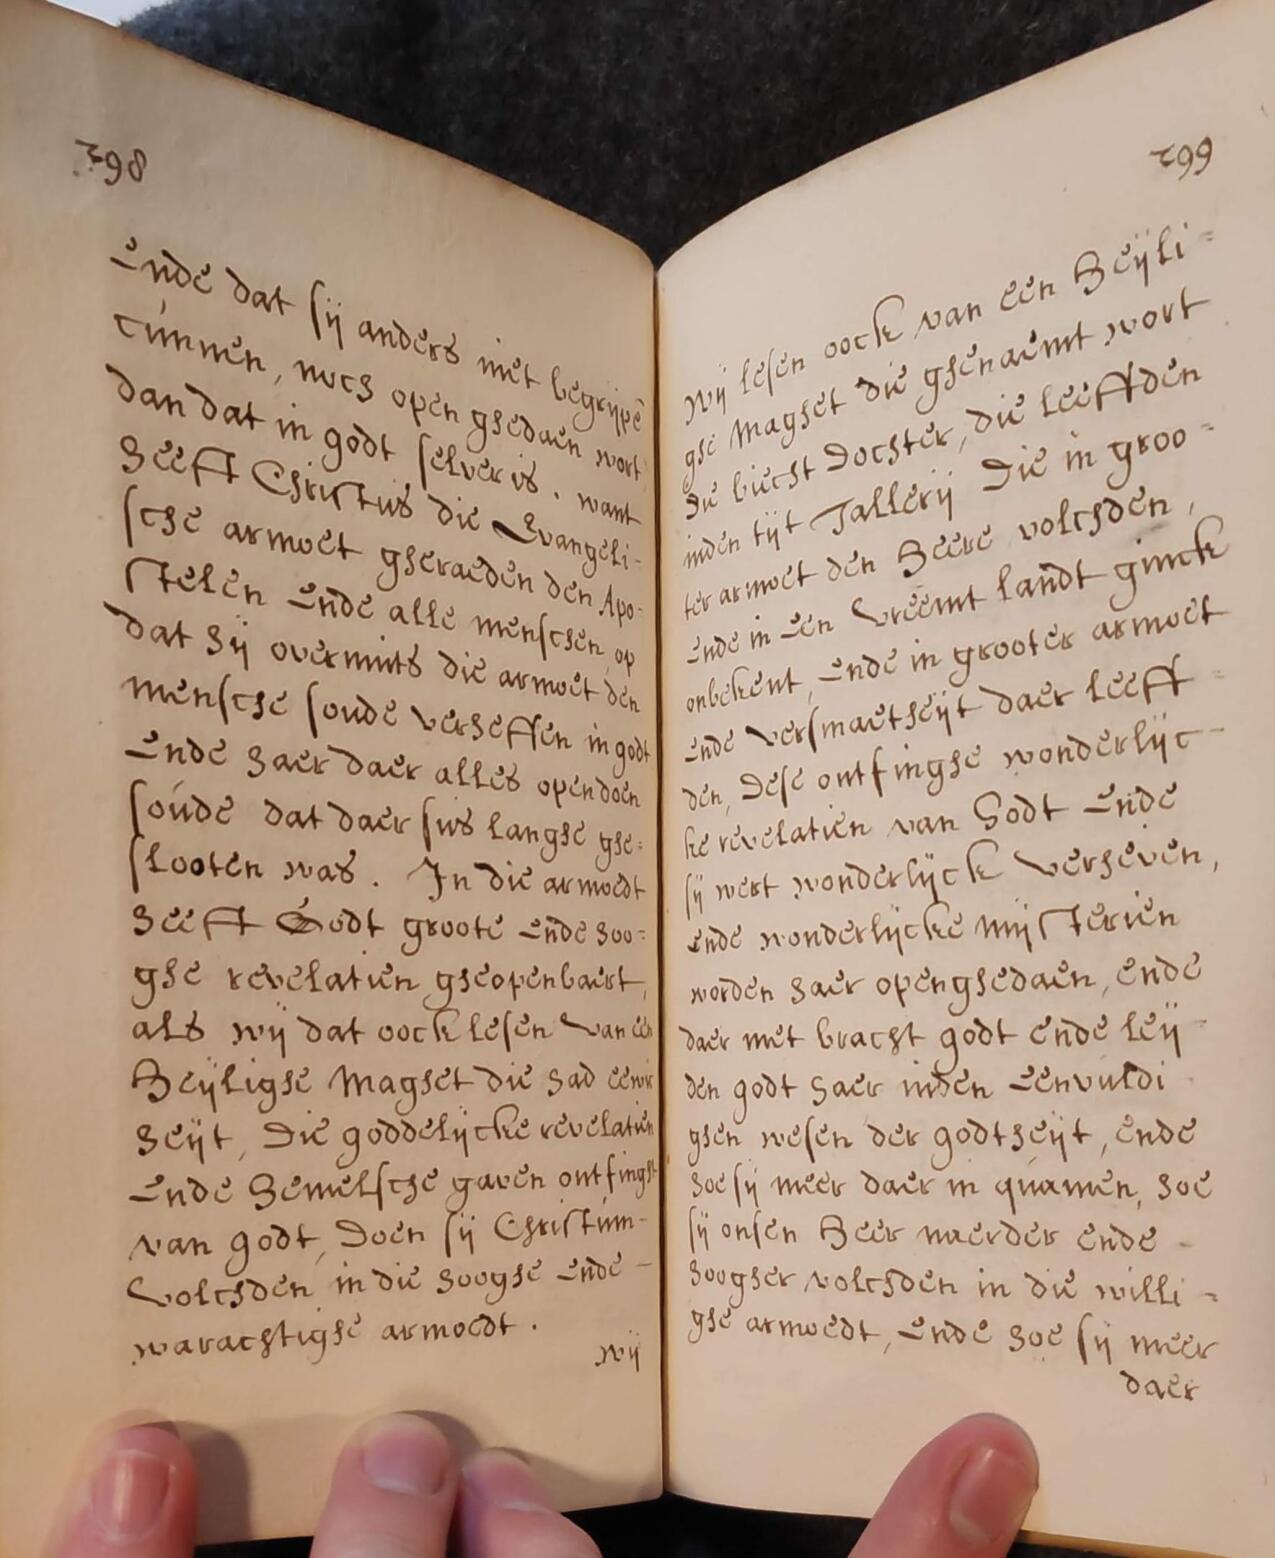 298
Ende dat sij anders niet begrijpē
cúnnen, noch open ghedaen wort
dan dat in godt selver is. want
heeft Christus die Evangeli-
sche armoet gheraeden den Apo-
stelen Ende alle menschen op
dat hij overmits die armoet den
mensche soude verheffen in godt
Ende haer daer alles opendoen
soúde dat daer sus langhe ghe=
slooten was. In die armoedt
heeft Godt groote Ende hoo=
ghe revelatien gheopenbaert,
als wij dat oock lesen van een
Heijlighe Maghet die had
heijt, Die goddelijcke revelatien
Ende hemelsche gaven ontfinght
van godt, Doen sij Christúm-
volchden in die hooghe Ende -
warachtighe armoedt.
wij
299
Wij lesen oock van een Heijli=
ghe Maghet die ghenaemt wort
De biecht Dochter, die leeffden
inden tijt Tallerij Die in groo=
ter armoet den Heere volchden,
Ende in Een vreemt landt ginck
onbekent, Ende in grooter armoet
Ende versmaetheijt daer leeff=
den, Dese ontfinghe wonderlijc-
ke revelatien van Godt Ende
sij wert wonderlijck verheven,
Ende wonderlijcke mijsterien
worden haer openghedaen, Ende
daer met bracht godt Ende leij
den godt haer inden Eenvuldi
ghen wesen der godtheijt, Ende
hoe sij meer daer in quamen, hoe
sij onsen Heer naerder Ende -
hoogher volchden in die willi=
ghe armoedt, Ende hoe sij meer
daer